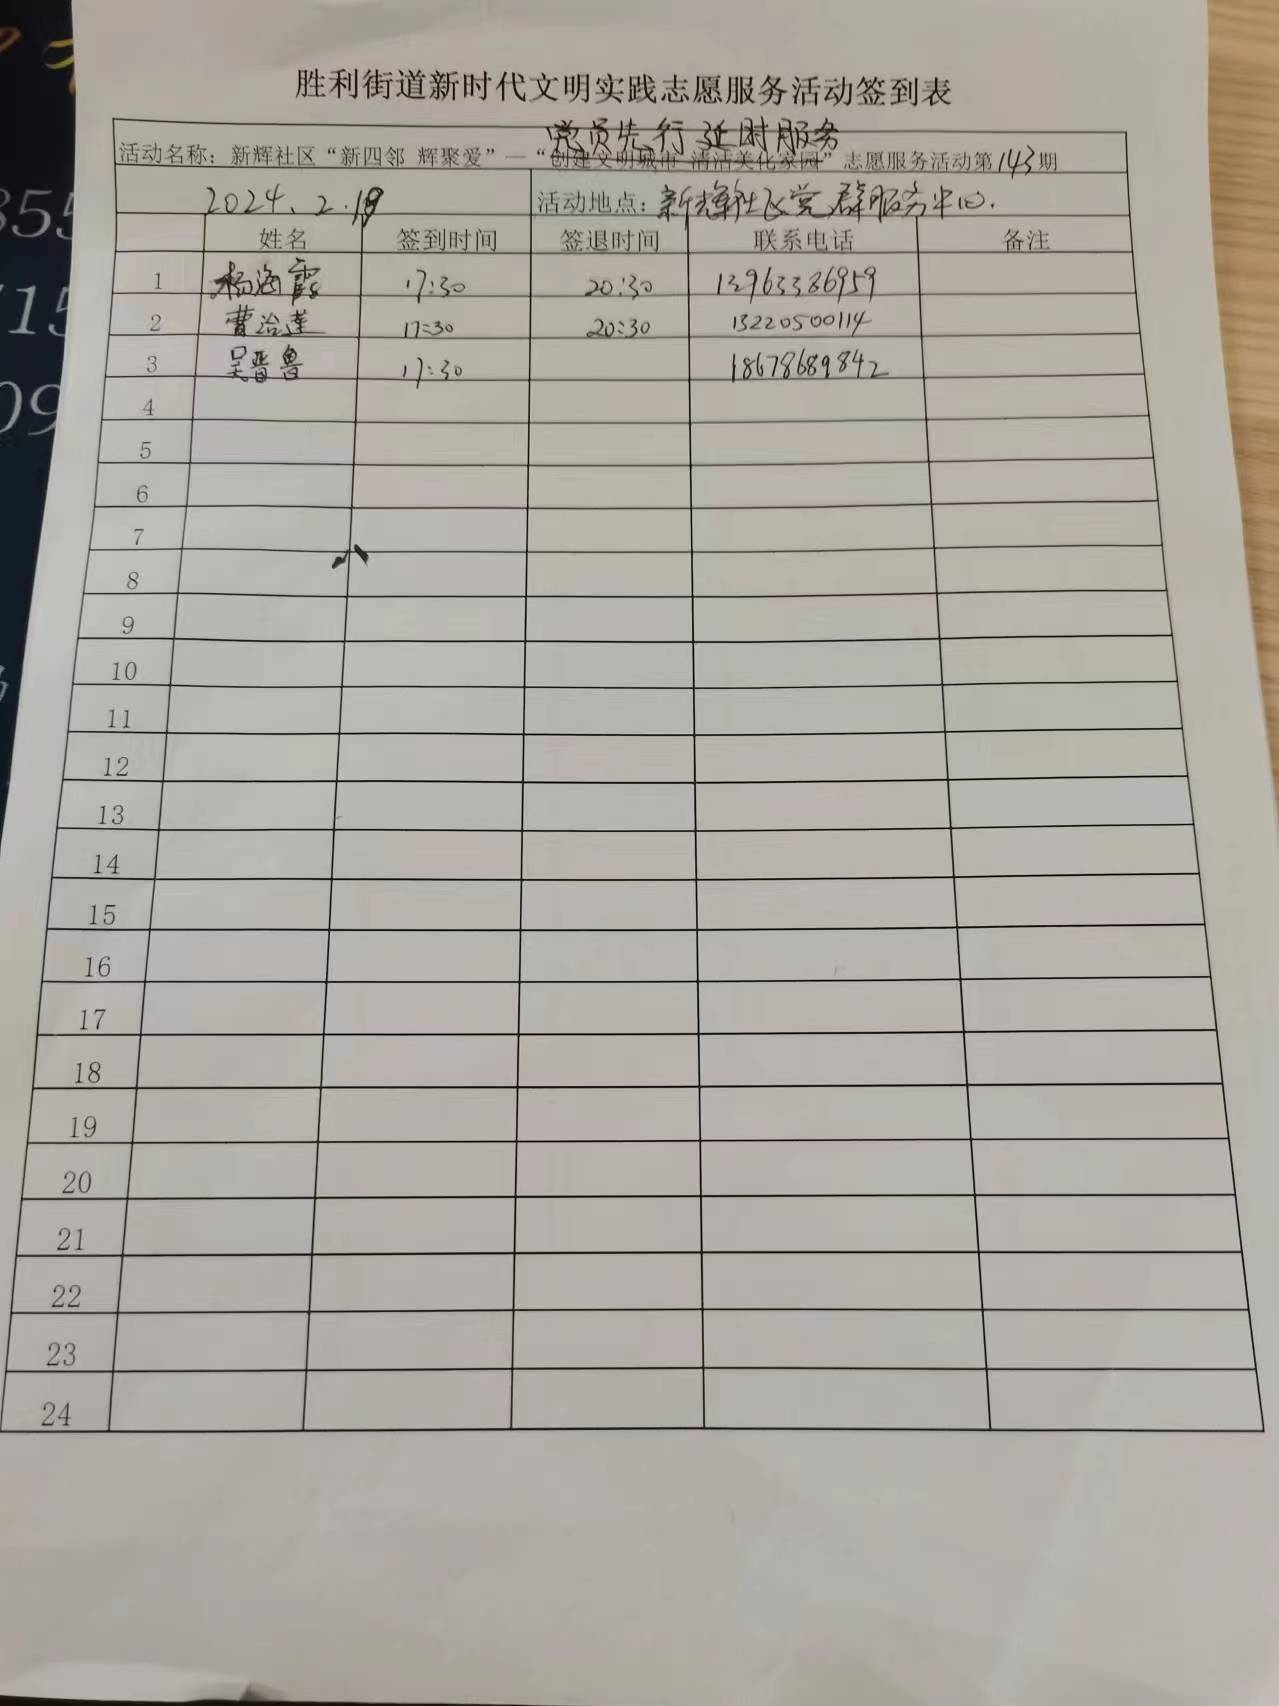 胜利街道新时代文明实践志愿服务活动签到表
党员先行 延时服务
活动名称：新辉社区“新四邻 辉聚爱”—“创建文明城市 清洁美化家园”志愿服务活动第143期
2024.2.18 活动地点：新辉社区党群服务中心.
姓名 签到时间 签退时间 联系电话 备注
1 杨海霞 17:30 20:30 13963386959
2 曹治莲 17:30 20:30 13220500114
3 吴晋鲁 17:30 18678689842
4
5
6
7
8
9
10
11
12
13
14
15
16
17
18
19
20
21
22
23
24
855
715
09